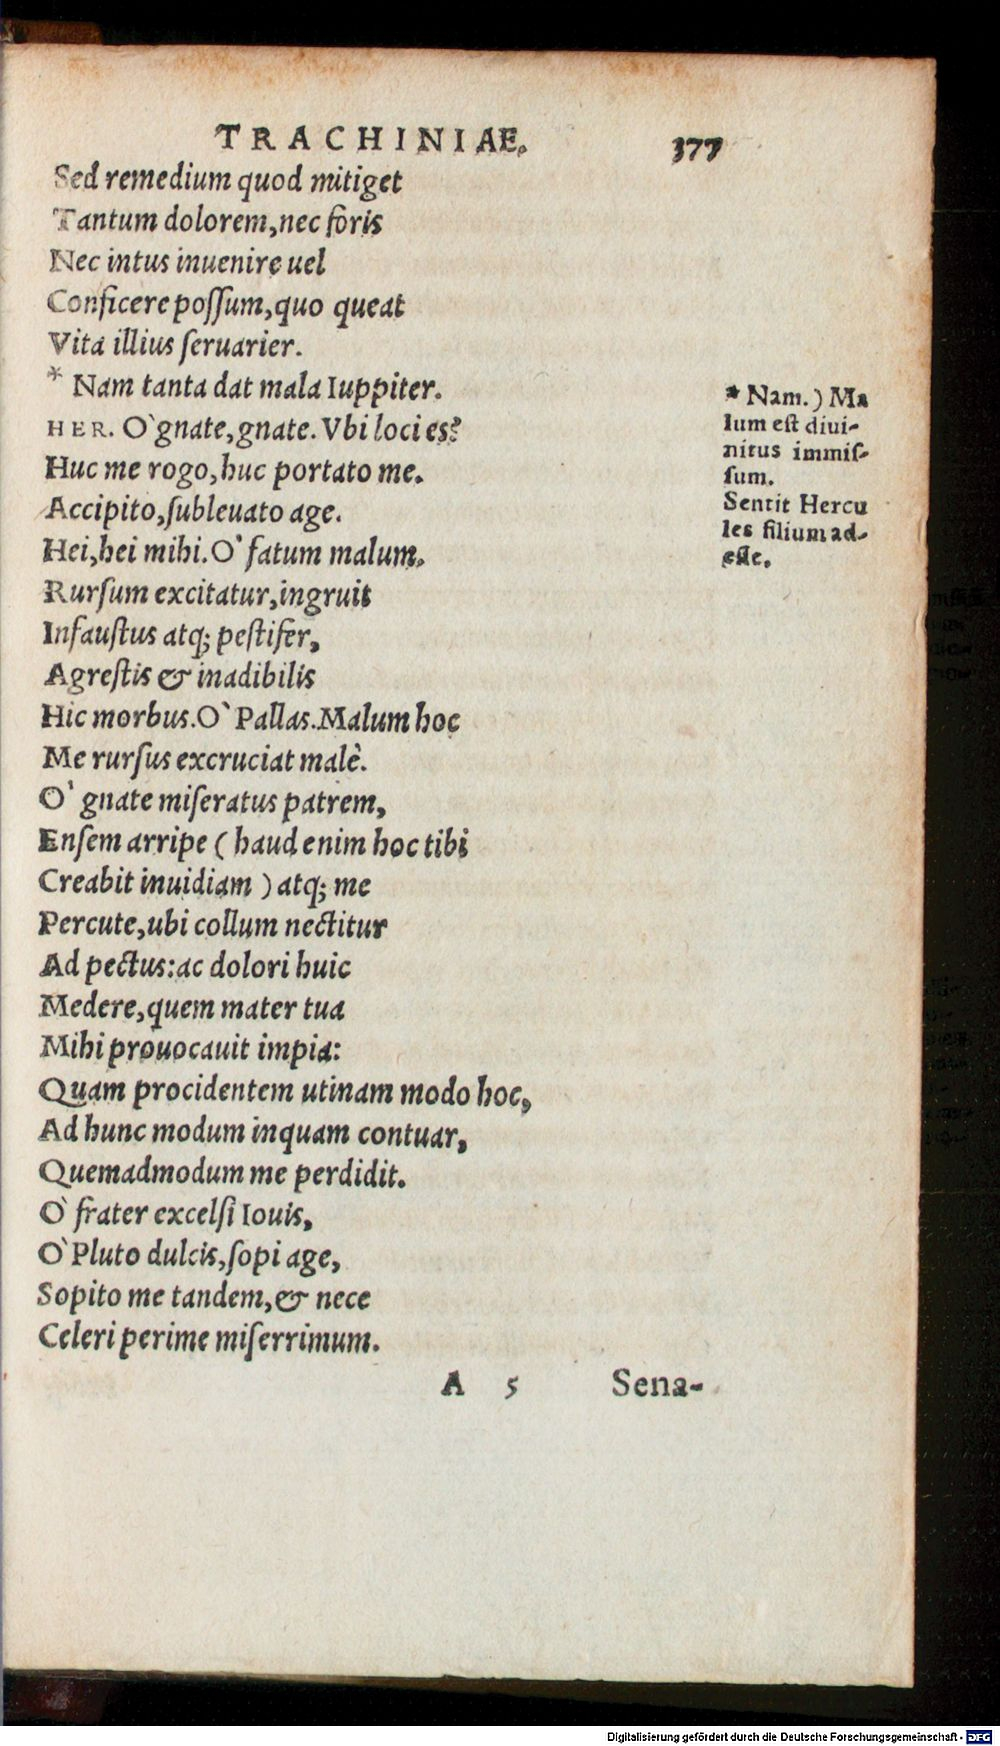 TRACHINIAE. 377
Sed remedium quod mitiget
Tantum dolorem, nec foris
Nec intus inuenire uel
Conficere poſſum, quo queat
Vita illius ſeruarier.
* Nam tanta dat mala Iuppiter.
HER. O` gnate, gnate. Vbi loci es?
Huc me rogo, huc portato me.
Accipito, ſubleuato age.
Hei, hei mihi. O` fatum malum.
Rurſum excitatur, ingruit
Infauſtus atq; peſtifer,
Agreſtis & inadibilis
Hic morbus. O` Pallas. Malum hoc
Me rurſus excruciat malè.
O` gnate miſeratus patrem,
Enſem arripe ( haud enim hoc tibi
Creabit inuidiam ) atq; me
Percute, ubi collum nectitur
Ad pectus: ac dolori huic
Medere, quem mater tua
Mihi prouocauit impia:
Quam procidentem utinam modo hoc,
Ad hunc modum inquam contuar,
Quemadmodum me perdidit.
O` frater excelſi Iouis,
O` Pluto dulcis, ſopi age,
Sopito me tandem, & nece
Celeri perime miſerrimum.
* Nam. ) Ma
lum eſt diui-
nitus immiſ-
ſum.
Sentit Hercu
les filium ad-
eſſe.
A 5 Sena-
Digitalisierung gefördert durch die Deutsche Forschungsgemeinschaft - DFG